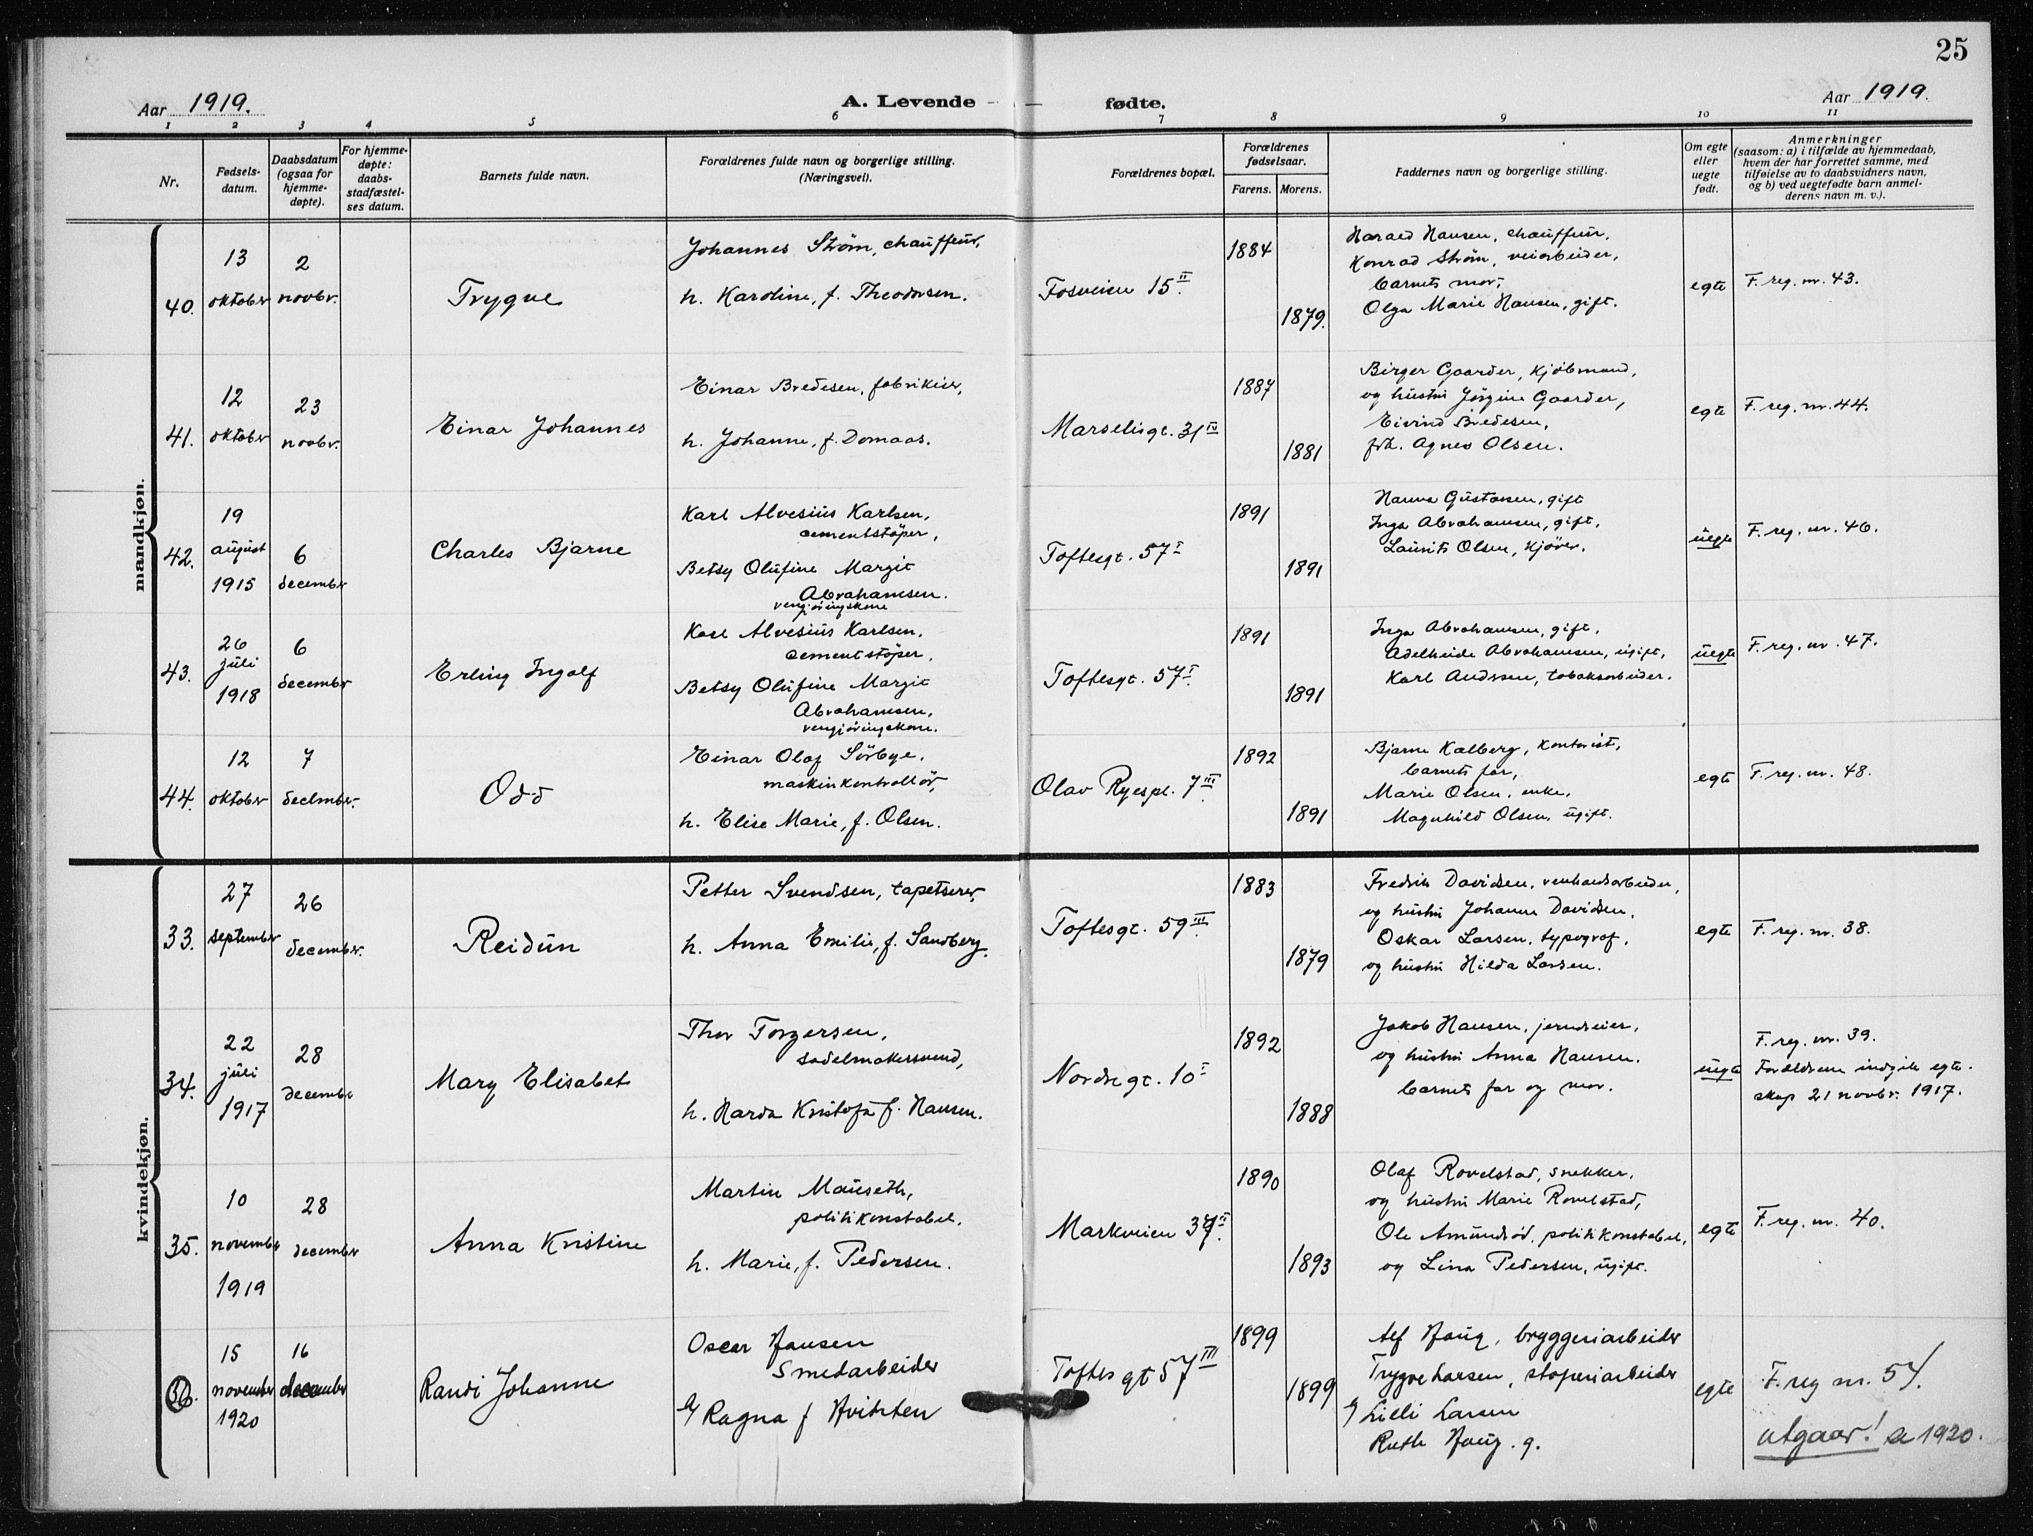 25
Aar 1919.
A. Levende fødte.
Aar 1919.
1 2 3 4 5 6 7 8 9 10 11
Nr.
Fødsels-
datum.
Daabsdatum
(ogsaa for
hjemme-
døpte).
For hjemme-
døpte:
daabs-
stadfæstel-
ses datum.
Barnets fulde navn.
Forældrenes fulde navn og borgerlige stilling.
(Næringsvei).
Forældrenes bopæl.
Forældrenes
fødselsaar.
Farens. Morens.
Faddernes navn og borgerlige stilling.
Om egte
eller
uegte
født.
Anmerkninger
(saasom: a) i tilfælde av hjemmedaab,
hvem der har forrettet samme, med
tilføielse av to daabsvidners navn,
og b) ved uegtefødte barn anmel-
derens navn m. v.).
mandkjøn.
40.
13
oktober
2
novbr.
Trygve
Johannes Strøm, chauffeur,
h. Karoline, f. Theodorsen.
Fosveien 15 II.
1884
1879.
Harald Hansen, chauffeur,
Konrad Strøm, veiarbeider,
barnets mor,
Olga Marie Hansen, gift.
egte
F. reg. nr. 43.
41.
12
oktober
23
novbr.
Einar Johannes
Einar Bredesen, fabrikeier,
h. Johanne, f. Domaas.
Marselisgt. 31 IV
1887
1881
Birger Gaarder, kjøbmand,
og hustru Jørgine Gaarder,
Eivind Bredesen,
frk. Agnes Olsen.
egte
F. reg. nr. 44.
42.
19
august
1915
6
december
Charles Bjarne
Karl Alvesius Karlsen,
cementstøper,
Betsy Olufine Margit
Abrahamsen.
rengjøringskone
Toftesgt. 57 I
1891
1891
Hanna Gustavsen, gift
Inga Abrahamsen, gift,
Laurits Olsen, kjører.
uegte
F. reg. nr. 46.
43.
26
juli
1918
6
december
Erling Ingolf
Karl Alvesius Karlsen,
cementstøper,
Betsy Olufine Margit
Abrahamsen,
rengjøringskone.
Toftesgt. 57 I.
1891
1891
Inga Abrahamsen, gift,
Adelheide Abrahamsen, ugift,
Karl Andersen, tobaksarbeider.
uegte
F. reg. nr. 47.
44.
12
oktober
7
december.
Odd
Einar Olaf Sørbye,
maskinkontrollør,
h. Elise Marie, f. Olsen.
Olav Ryespl. 7 III
1892
1891
Bjarne Kalberg, kontorist,
barnets far,
Marie Olsen, enke,
Magnhild Olsen, ugift.
egte
F. reg. nr. 48.
kvindekjøn.
33.
27
september
26
december.
Reidun
Petter Svendsen, tapetserer,
h. Anna Emilie, f. Sandberg.
Toftesgt. 59 III.
1883
1879
Fredrik Davidsen, renholdsarbeider,
og hustru Johanne Davidsen,
Oskar Larsen, typograf,
og hustru Hilda Larsen.
egte
F. reg. nr. 38.
34.
22
juli
1917
28
december
Mary Elisabet
Thor Torgersen,
sadelmakersvend,
h. Harda Kristofa f. Hansen.
Nordregt. 10 I
1892
1888
Jakob Hansen, jerndreier,
og hustru Anna Hansen.
barnets far og mor.
uegte
F. reg. nr. 39.
Forældrene indgik egte-
skap 21 novbr. 1917.
35.
10
november
1919
28
december
Anna Kristine
Martin Mauseth,
politikonstabel,
h. Marie, f. Pedersen.
Markveien 37 II.
1890
1893
Olaf Rovelstad, snekker,
og hustru Marie Rovelstad,
Ole Amundrød, politikonstabel,
og Lina Pedersen, ugift.
egte
F. reg. nr. 40.
36.
15
november
1920
16
december
Randi Johanne
Oscar Hansen
Smedarbeider
og Ragna f Hvitsten
Toftes gt 57 III
1899
1899
Alf Haug, bryggeriarbeider
Trygve Larsen, støperiarbeider
og Lilli Larsen
Ruth Haug. g.
egte
F. reg nr. 54.
utgaar! se 1920.